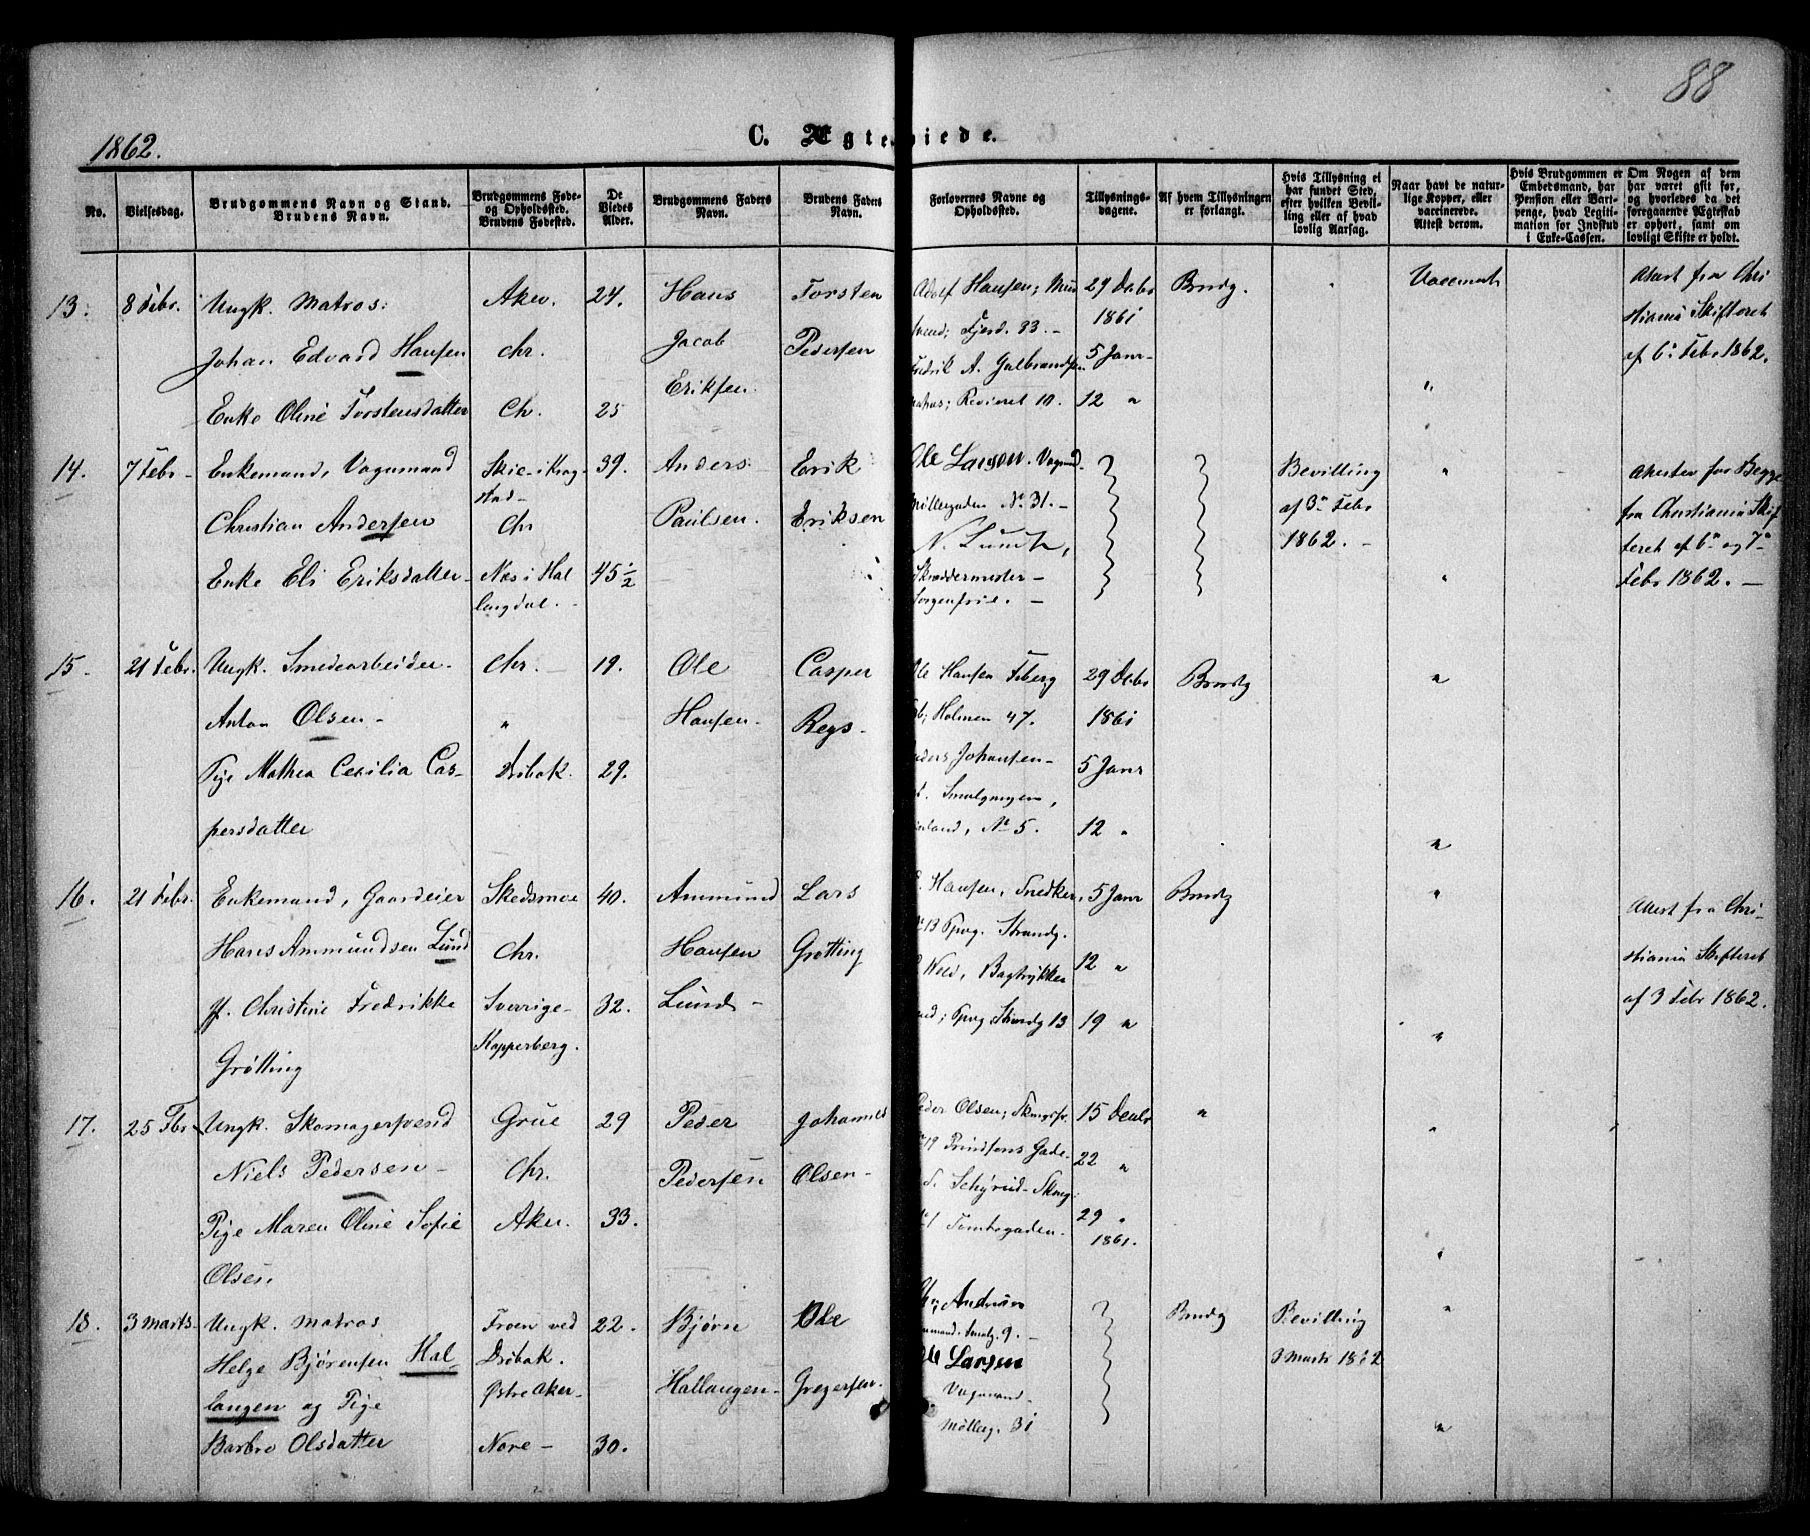 88
1862.
C. Ægteviede.
No.
Vielsesdag.
Brudgommens Navn og Stand.
Brudens Navn.
Brudgommens Føde-
og Opholdssted.
Brudens Fødested.
De
Viedes
Alder.
Brudgommens Faders
Navn.
Brudens Faders
Navn.
Forlovernes Navne og
Opholdssted.
Tillysnings-
dagene.
Af hvem Tillysningen
er forlangt.
Hvis Tillysning ei
har fundet Sted,
efter hvilken Bevil-
ling eller af hvad
lovlig Aarsag.
Naar havt de natur-
lige Kopper, eller
vaccinerede.
Attest derom.
Hvis Brudgommen er
Embedsmand, har
Pension eller Vart-
penge, hvad Legiti-
mation for Indskud
i Enke-Cassen.
Om Nogen af dem
har været gift før,
og hvorledes da det
foregaaende Ægteskab
er ophørt, samt om
lovligt Skifte er holdt.
13.
8 Febr.
Ungk. Matros:
Johan Edvard Hansen
Enke Oline Torstensdatter
Aker.
Chr.
Ch.
24.
25
Hans
Jacob
Eriksen
Torsten
Pedersen
Adolf Hansen,
Fjerd. 33.
A. Gulbrandsen
Revieret 10.
29 Decbr
1861
5 Janr
12 "
Brudg.
Attest fra Chri
stiania Skifteret
af 6. Febr 1862.
14.
7 Febr
Enkemand, Vognmand
Christian Andersen
Enke Eli Eriksdatter
Skie i Krog
stad
Chr
Næs i Hal
langdal.
39.
45 1/2
Anders
Paulsen.
Erik
Eriksen
Ole Larsen. Vognmd
Møllergaden No 31.
N. Lundh,
Skreddermester
Sorgenfrie.
Bevilling
af 3 Febr
1862.
Attester for Begge
fra Christiania Skif
teret af 6 og 7
Febr 1862.
15
21 Febr.
Ungk. Smedearbeider
Anton Olsen
Pige Mathea Cecilia Cas-
persdatter
Chr.
"
Drøbak.
19.
29.
Ole
Hansen
Casper
Regs
Ole Hansen Feberg
Holmen 47.
Johansen
Smalgangen,
No 5.
29 Decbr
1861
5 Janr
12 "
Brudg
"
"
16.
21 Febr.
Enkemand, Gaardeier
Hans Ammundsen Lund
Jf. Christine Fredrikke
Grøtting
Skedsmoe
Chr.
Sverrige
Kopperberg.
40.
32.
Ammund
Hansen
Lund
Lars
Grøtting
Hansen, Snedker,
13 Tpvg. Strandg.
Wold, Bogtrykker
Tpvg Strandg 13
5 Janr
12 "
19 "
Brudg
"
"
Attest fra Chri-
stiania Skifteret
af 3 Febr 1862.
17.
25 Fbr
Ungk. Skomagersvend
Niels Pedersen
Pige Maren Oline Sofie
Olsen
Grue
Chr.
Aker.
29
33.
Peder
Pedersen
Johannes
Olsen
Peder Olsen,
19 Prindsens Gade
Schyrud
Tomtegaden.
15 Decbr
22 "
29 "
1861.
"
"
"
18.
3 Marts
Ungk. Matros
Helge Bjørensen Hal
langen og Pige
Barbro Olsdatter
Froen ved
Drøbak.
Østre Aker
Nore
22.
30.
Bjørn
Hallangen
Ole
Gregersen.
Andersen
Smalg. 9.
Ole Larsen
Vognmand
Møllerg. 31
Brudg
Bevilling
3 Marts 1862
"
"